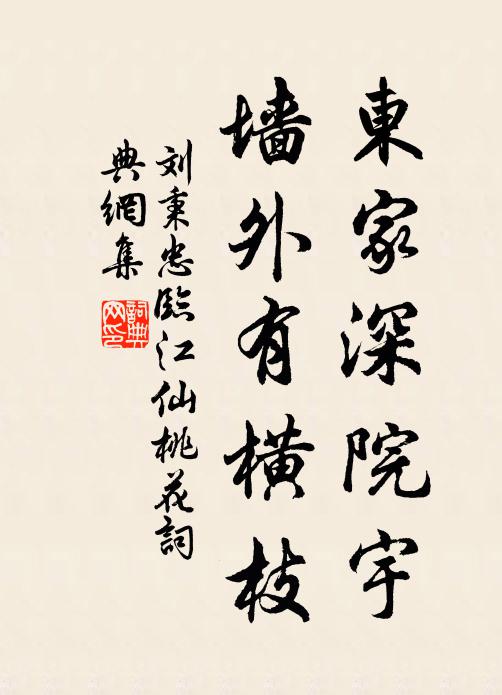 東家深院宇
墙外有横枝
刘秉忠臨江仙桃花詞
典網集
詞典网印